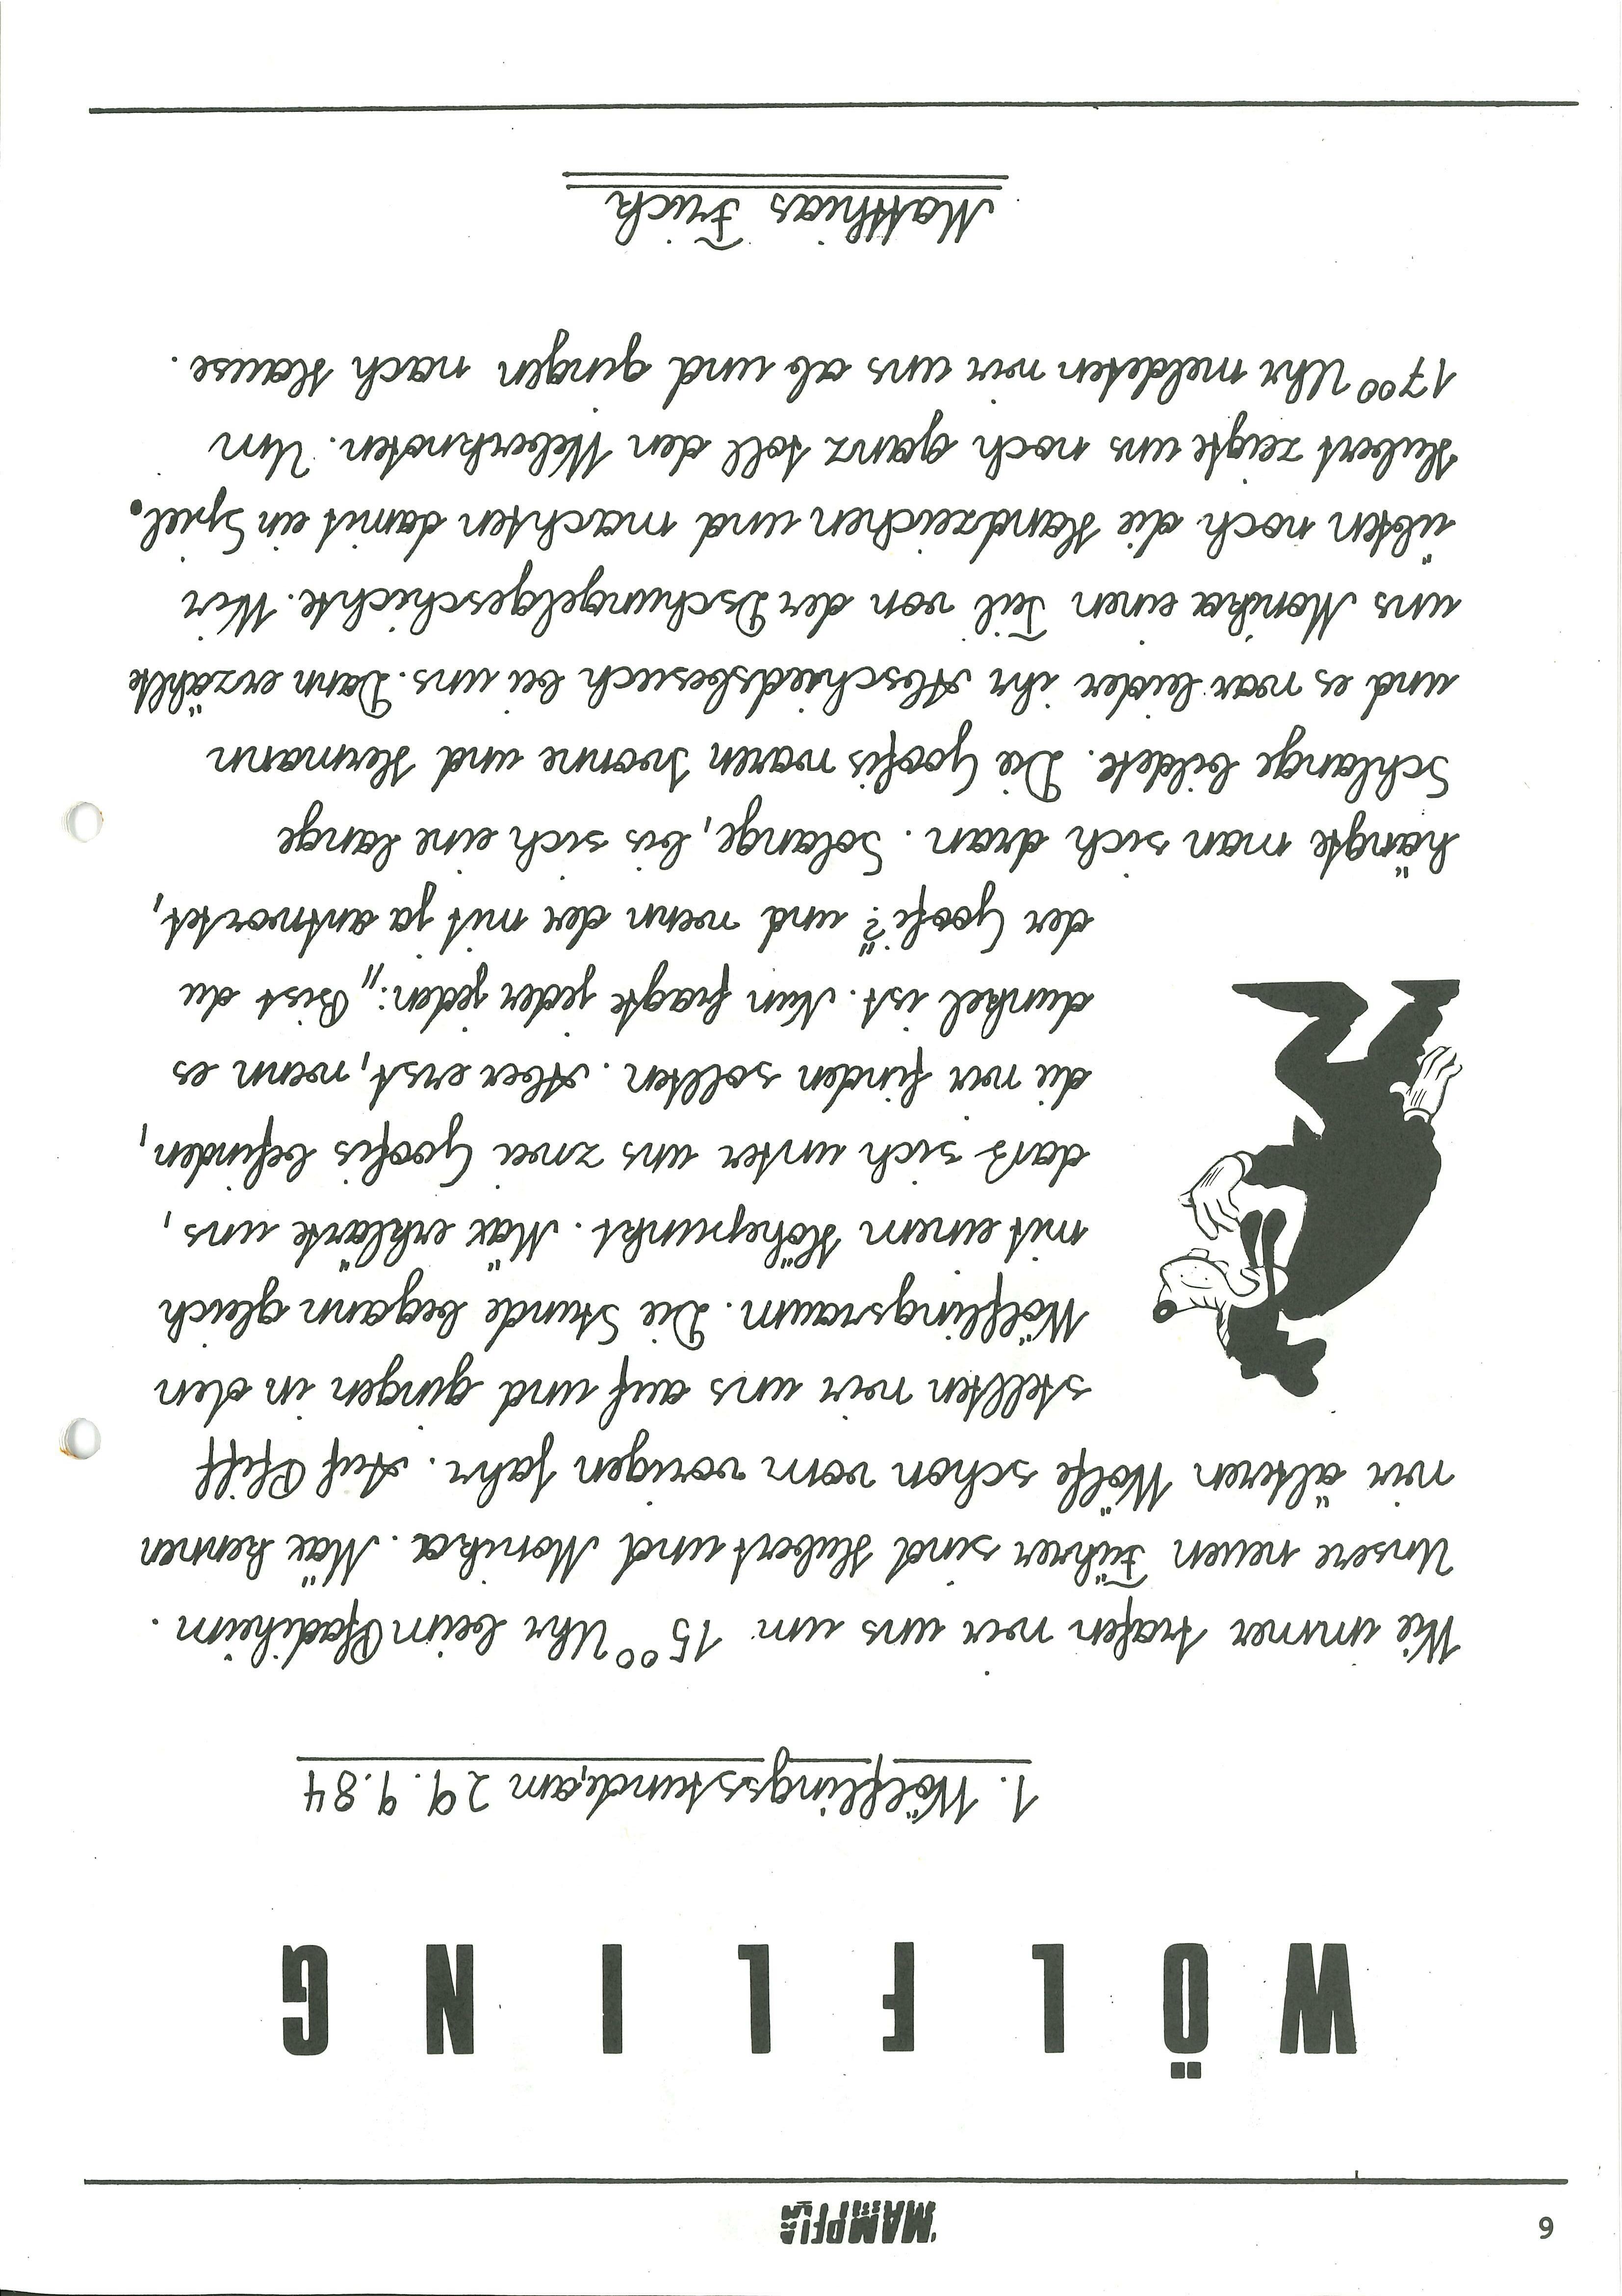 6
MAMPFIA
WÖLFLING
1. Wölflingsstunde, am 29.9.84
Wie immer trafen wir uns um 15⁰⁰ Uhr beim Pfadiheim.
Unsere neuen Führer sind Hubert und Monika. Mäx kennen
wir älteren Wölfe schon vom vorigen Jahr. Auf Pfiff
stellten wir uns auf und gingen in den
Wölflingsraum. Die Stunde begann gleich
mit einem Höhepunkt. Mäx erklärte uns,
daß sich unter uns zwei Goofis befinden,
die wir finden sollten. Aber erst, wenn es
dunkel ist. Nun fragte jeder jeden: „Bist du
der Goofi?" und wenn der mit ja antwortet,
hängte man sich dran. Solange, bis sich eine lange
Schlange bildete. Die Goofis waren Ivonne und Hermann
und es war leider ihr Abschiedsbesuch bei uns. Dann erzählte
uns Monika einen Teil von der Dschungelgeschichte. Wir
übten noch die Handzeichen und machten damit ein Spiel.
Hubert zeigte uns noch ganz toll den Weberknoten. Um
17⁰⁰ Uhr meldeten wir uns ab und gingen nach Hause.
Matthias Frich